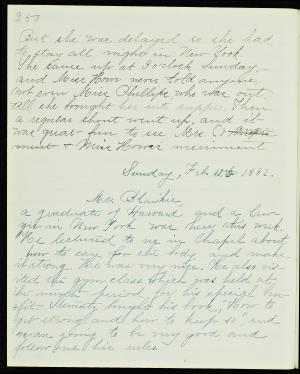 253
But she was delayed so she had
to stay all night in New York
She came up at 3 o'clock Sunday,
and Miss never told anyone,
not even Miss Phillips who was out
till she brought her into supper. Then
a regular shout went up, and it
was great fun to see Mrs.
ment & Miss merriment
Sunday, Feb 1882.
Mr. Blaikie,
a graduate of Harvard and a law-
yer in New York was here this week.
He lectured to us in Chapel about
how to care for the body and make
it strong. He was very nice. He also vis-
ited the gym class which was held at
the minute period for his special bene-
fit. bought his book, "How to
get strong and how to keep so", and
we are going to be very good and
follow out his rules.